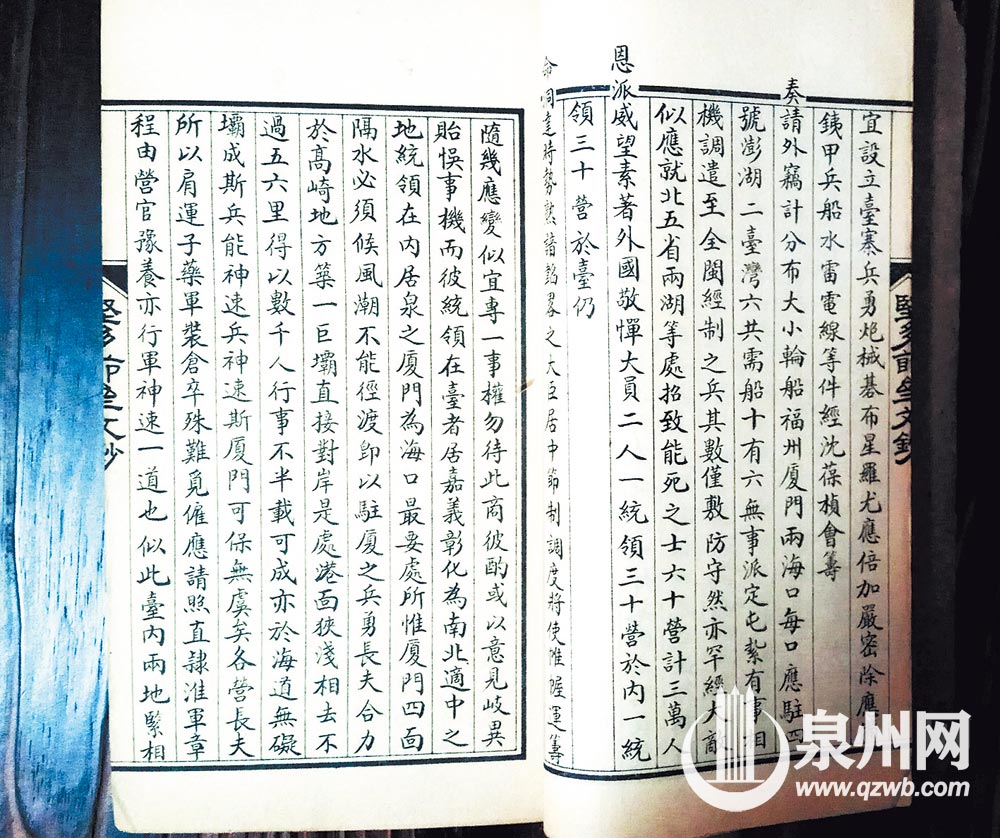 宜設立臺寨兵勇炮械碁布星羅尤應倍加嚴密除應
銕甲兵船水雷電線等件經沈葆楨會籌
奏請外竊計分布大小輪船福州厦門兩海口每口應駐
號澎湖二臺灣六共需船十有六無事派定屯紮有事相
機調遣至全閩經制之兵其數僅敷防守然亦罕經大敵
似應就北五省兩湖等處招致能死之士六十營計三萬人
恩派威望素著外國敬憚大員二人一統領三十營於內一統
領三十營於臺仍
達時勢熟諳韜畧之大臣居中節制調度將使帷幄運籌
隨幾應變似宜專一事權勿待此商彼酌或以意見歧異
貽悞事機而彼統領在臺者居嘉義彰化為南北適中之
地統領在內居泉之厦門為海口最要處所惟厦門四面
隔水必須候風潮不能徑渡卽以駐厦之兵勇長夫合力
於高崎地方築一巨壩直接對岸是處港面狹淺相去不
過五六里得以數千人行事不半載可成亦於海道無礙
壩成斯兵能神速兵神速斯厦門可保無虞矣各營長夫
所以肩運子藥軍裝倉卒殊難覓僱應請照直隸淮軍章
程由營官豫養亦行軍神速一道也似此臺內兩地緊相
泉州网
www.qzwb.com